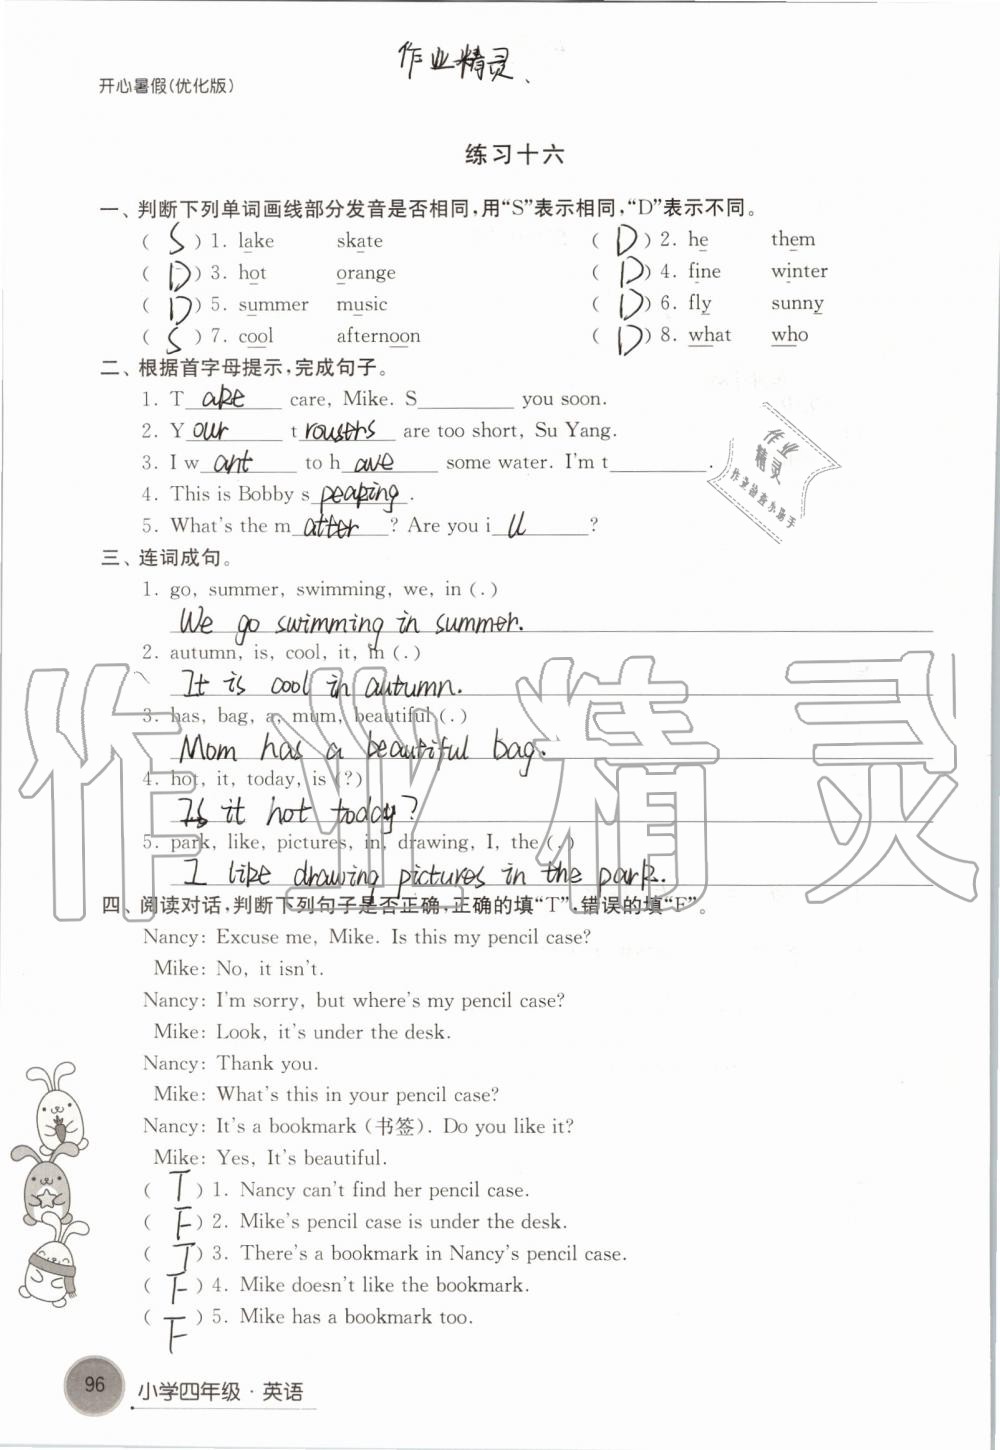 作业精灵、
开心暑假(优化版)
练习十六
一、判断下列单词画线部分发音是否相同,用“S”表示相同,“D”表示不同。
( S ) 1. lake skate ( D ) 2. he them
( D ) 3. hot orange ( D ) 4. fine winter
( D ) 5. summer music ( D ) 6. fly sunny
( S ) 7. cool afternoon ( D ) 8. what who
二、根据首字母提示,完成句子。
1. T ake care, Mike. S__________ you soon.
2. Y our t rousers are too short, Su Yang.
3. I w ant to h ave some water. I'm t__________.
4. This is Bobby s peaking.
5. What's the m atter ? Are you i ll ?
作业
精灵
作业检查小助手
三、连词成句。
1. go, summer, swimming, we, in (.)
We go swimming in summer.
2. autumn, is, cool, it, in (.)
It is cool in autumn.
3. has, bag, a, mum, beautiful (.)
Mom has a beautiful bag.
4. hot, it, today, is (?)
Is it hot today?
5. park, like, pictures, in, drawing, I, the (.)
I like drawing pictures in the park.
作业精灵
四、阅读对话,判断下列句子是否正确,正确的填“T”,错误的填“F”。
Nancy: Excuse me, Mike. Is this my pencil case?
Mike: No, it isn't.
Nancy: I'm sorry, but where's my pencil case?
Mike: Look, it's under the desk.
Nancy: Thank you.
Mike: What's this in your pencil case?
Nancy: It's a bookmark (书签). Do you like it?
Mike: Yes, It's beautiful.
( T ) 1. Nancy can't find her pencil case.
( F ) 2. Mike's pencil case is under the desk.
( T ) 3. There's a bookmark in Nancy's pencil case.
( F ) 4. Mike doesn't like the bookmark.
( F ) 5. Mike has a bookmark too.
96 小学四年级·英语